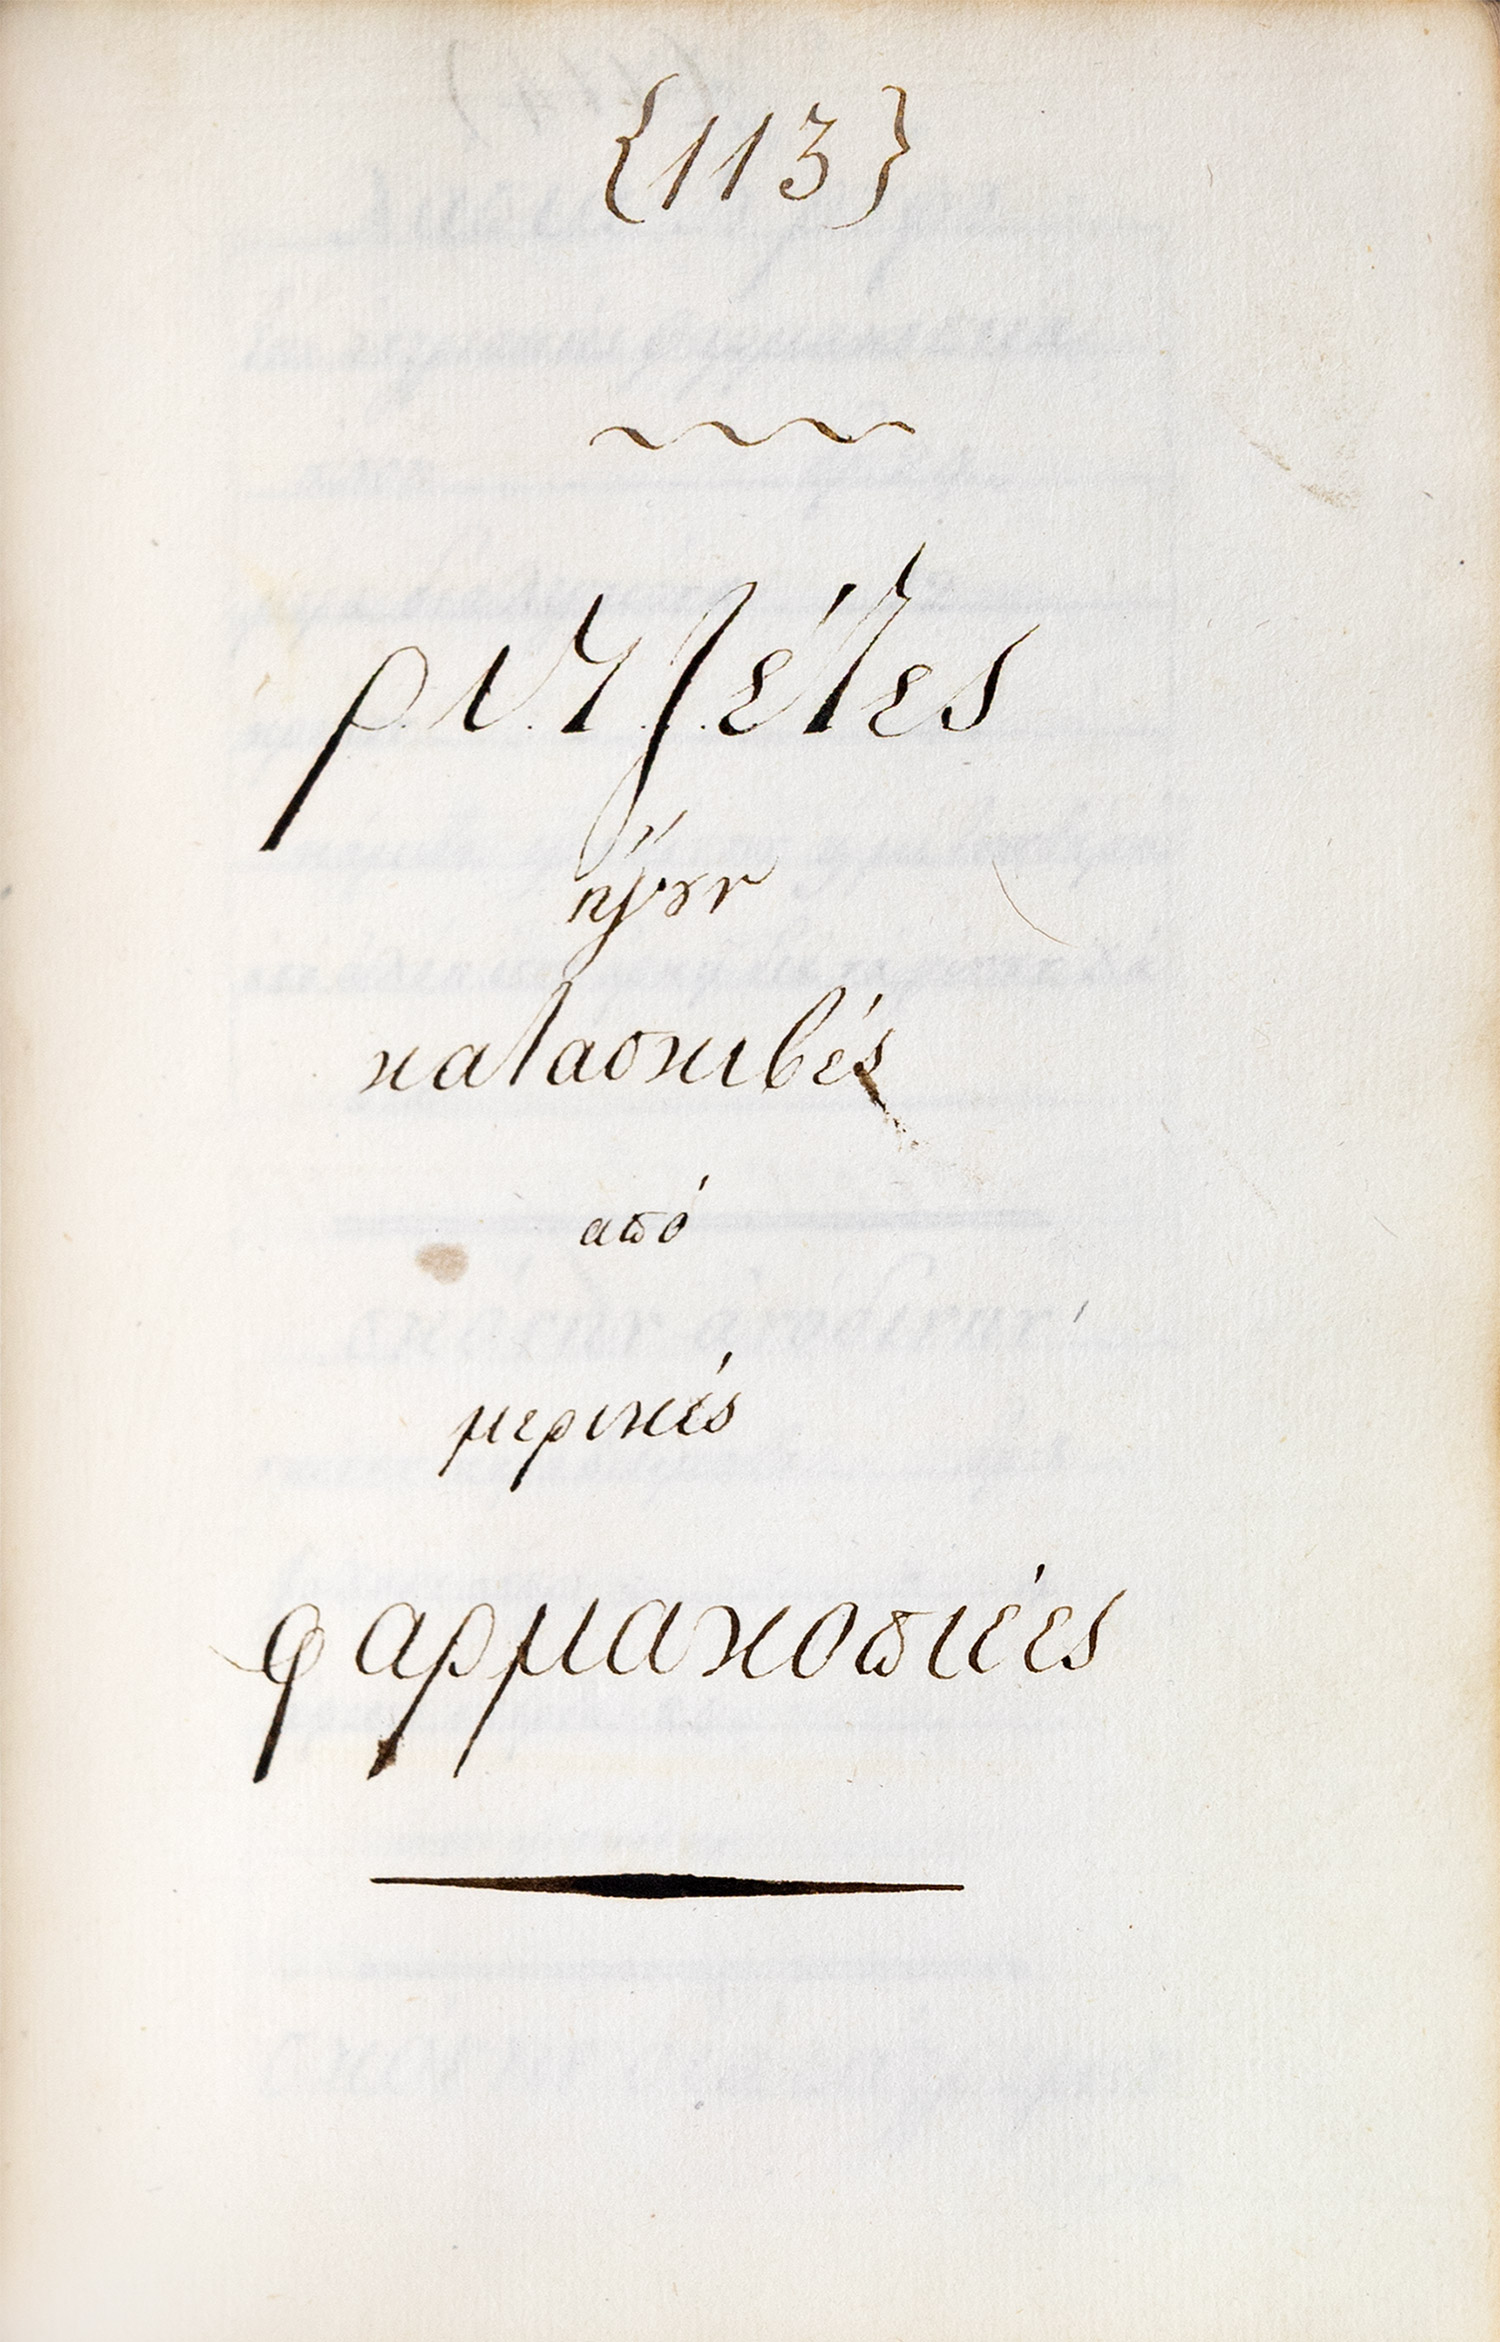 {113}
ριτζέτες
ήγουν
κατασκιβές
από
μερικές
φαρμακοπιέες